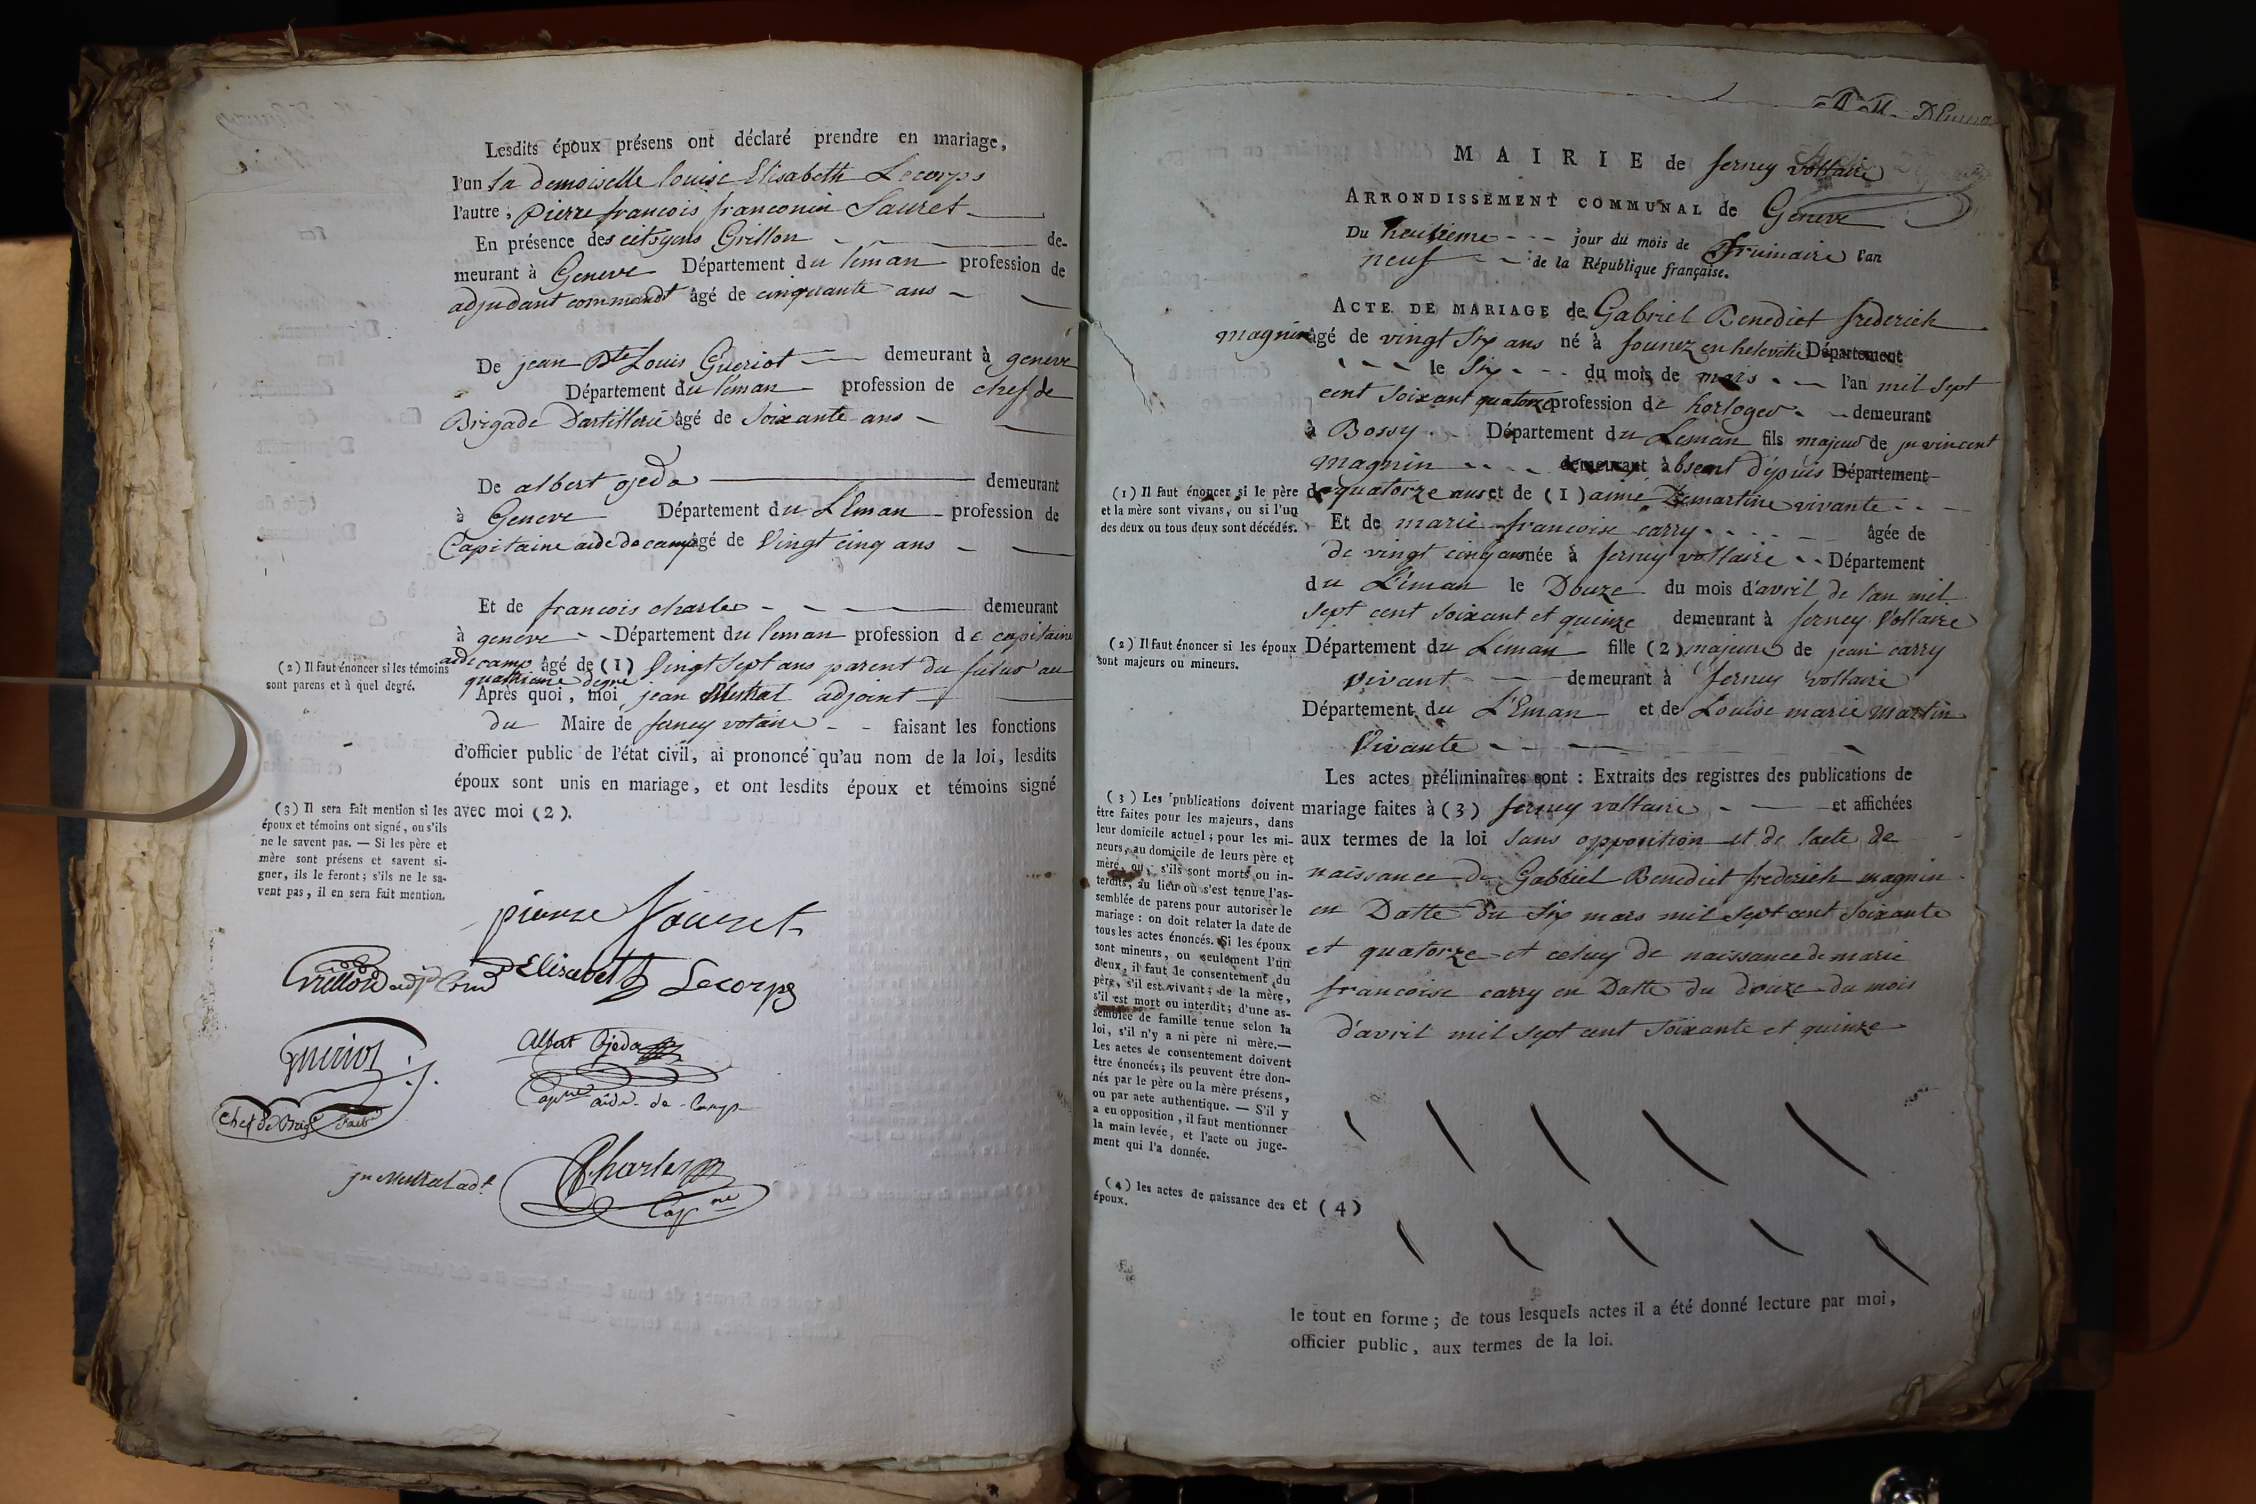 Lesdits époux présens ont déclaré prendre en mariage,
l'un la demoiselle louise Elisabeth Lecorps
l'autre, pierre francois franconin Sauret
En présence des citoyens Grillon de-
meurant à Geneve Département du leman profession de
adjudant commandt âgé de cinquante ans
De jean Bte Louis Gueriot demeurant à geneve
Département du leman profession de chef de
Brigade D'artillerie âgé de soixante ans
De albert ojeda demeurant
à Geneve Département du L'Eman profession de
Capitaine aide de camp âgé de Vingt cinq ans
Et de francois charles demeurant
à geneve Département du leman profession de capitaine
aide camp âgé de (1) Vingt Sept ans parent du futur au
quatrieme degré
(2) Il faut énoncer si les témoins
sont parens et à quel degré.
Après quoi, moi jean Mestral adjoint
du Maire de ferney votaire faisant les fonctions
d'officier public de l'état civil, ai prononcé qu'au nom de la loi, lesdits
époux sont unis en mariage, et ont lesdits époux et témoins signé
avec moi (2).
(3) Il sera fait mention si les
époux et témoins ont signé, ou s'ils
ne le savent pas. — Si les père et
mère sont présens et savent si-
gner, ils le feront; s'ils ne le sa-
vent pas, il en sera fait mention.
pierre Sauret
Grillon adjd Comd Elisabeth Lecorps
gueriot
Chef de Brige d'artie
Albert Ojeda
Capne aide-de-Camp
jn Mestral adt
Charles
Capne
MAIRIE de ferney voltaire
ARRONDISSEMENT COMMUNAL de Geneve
Du neuvieme jour du mois de frimaire l'an
neuf de la République française.
ACTE DE MARIAGE de Gabriel Benedict frederick
magnin âgé de vingt Six ans né à founex en helevetie Département
le Six du mois de mars l'an mil sept
cent soixant quatorze profession de horloger demeurant
à Bossy Département du Leman fils majeur de jn vincent
magnin demeurant absent dépuis Département
de quatorze ans et de (1) aimé Demartine vivante
(1) Il faut énoncer si le père
et la mère sont vivans, ou si l'un
des deux ou tous deux sont décédés.
Et de marie francoise carry âgée de
de vingt cinq ans née à ferney voltaire Département
du L'éman le Douze du mois d'avril de l'an mil
sept cent soixant et quinze demeurant à ferney Voltaire
Département du Léman fille (2) majeure de jean carry
(2) Il faut énoncer si les époux
sont majeurs ou mineurs.
vivant demeurant à ferney voltaire
Département du L'Eman et de Louise marie martin
Vivante
Les actes préliminaires sont : Extraits des registres des publications de
mariage faites à (3) ferney voltaire et affichées
aux termes de la loi sans opposition et de l'acte de
naissance de Gabriel Benedict frederick magnin
en Datte du Six mars mil sept cent soixante
et quatorze et celuy de naissance de marie
francoise carry en Datte du douze du mois
d'avril mil sept cent soixante et quinze
(3) Les publications doivent
être faites pour les majeurs, dans
leur domicile actuel; pour les mi-
neurs, au domicile de leurs père et
mère, ou, s'ils sont morts ou in-
terdits, au lieu où s'est tenue l'as-
semblée de parens pour autoriser le
mariage : on doit relater la date de
tous les actes énoncés. Si les époux
sont mineurs, ou seulement l'un
d'eux, il faut le consentement du
père, s'il est vivant; de la mère,
s'il est mort ou interdit; d'une as-
semblée de famille tenue selon la
loi, s'il n'y a ni père ni mère.—
Les actes de consentement doivent
être énoncés; ils peuvent être don-
nés par le père ou la mère présens,
ou par acte authentique. — S'il y
a eu opposition, il faut mentionner
la main levée, et l'acte ou juge-
ment qui l'a donnée.
(4) les actes de naissance des
époux.
et (4)
le tout en forme; de tous lesquels actes il a été donné lecture par moi,
officier public, aux termes de la loi.